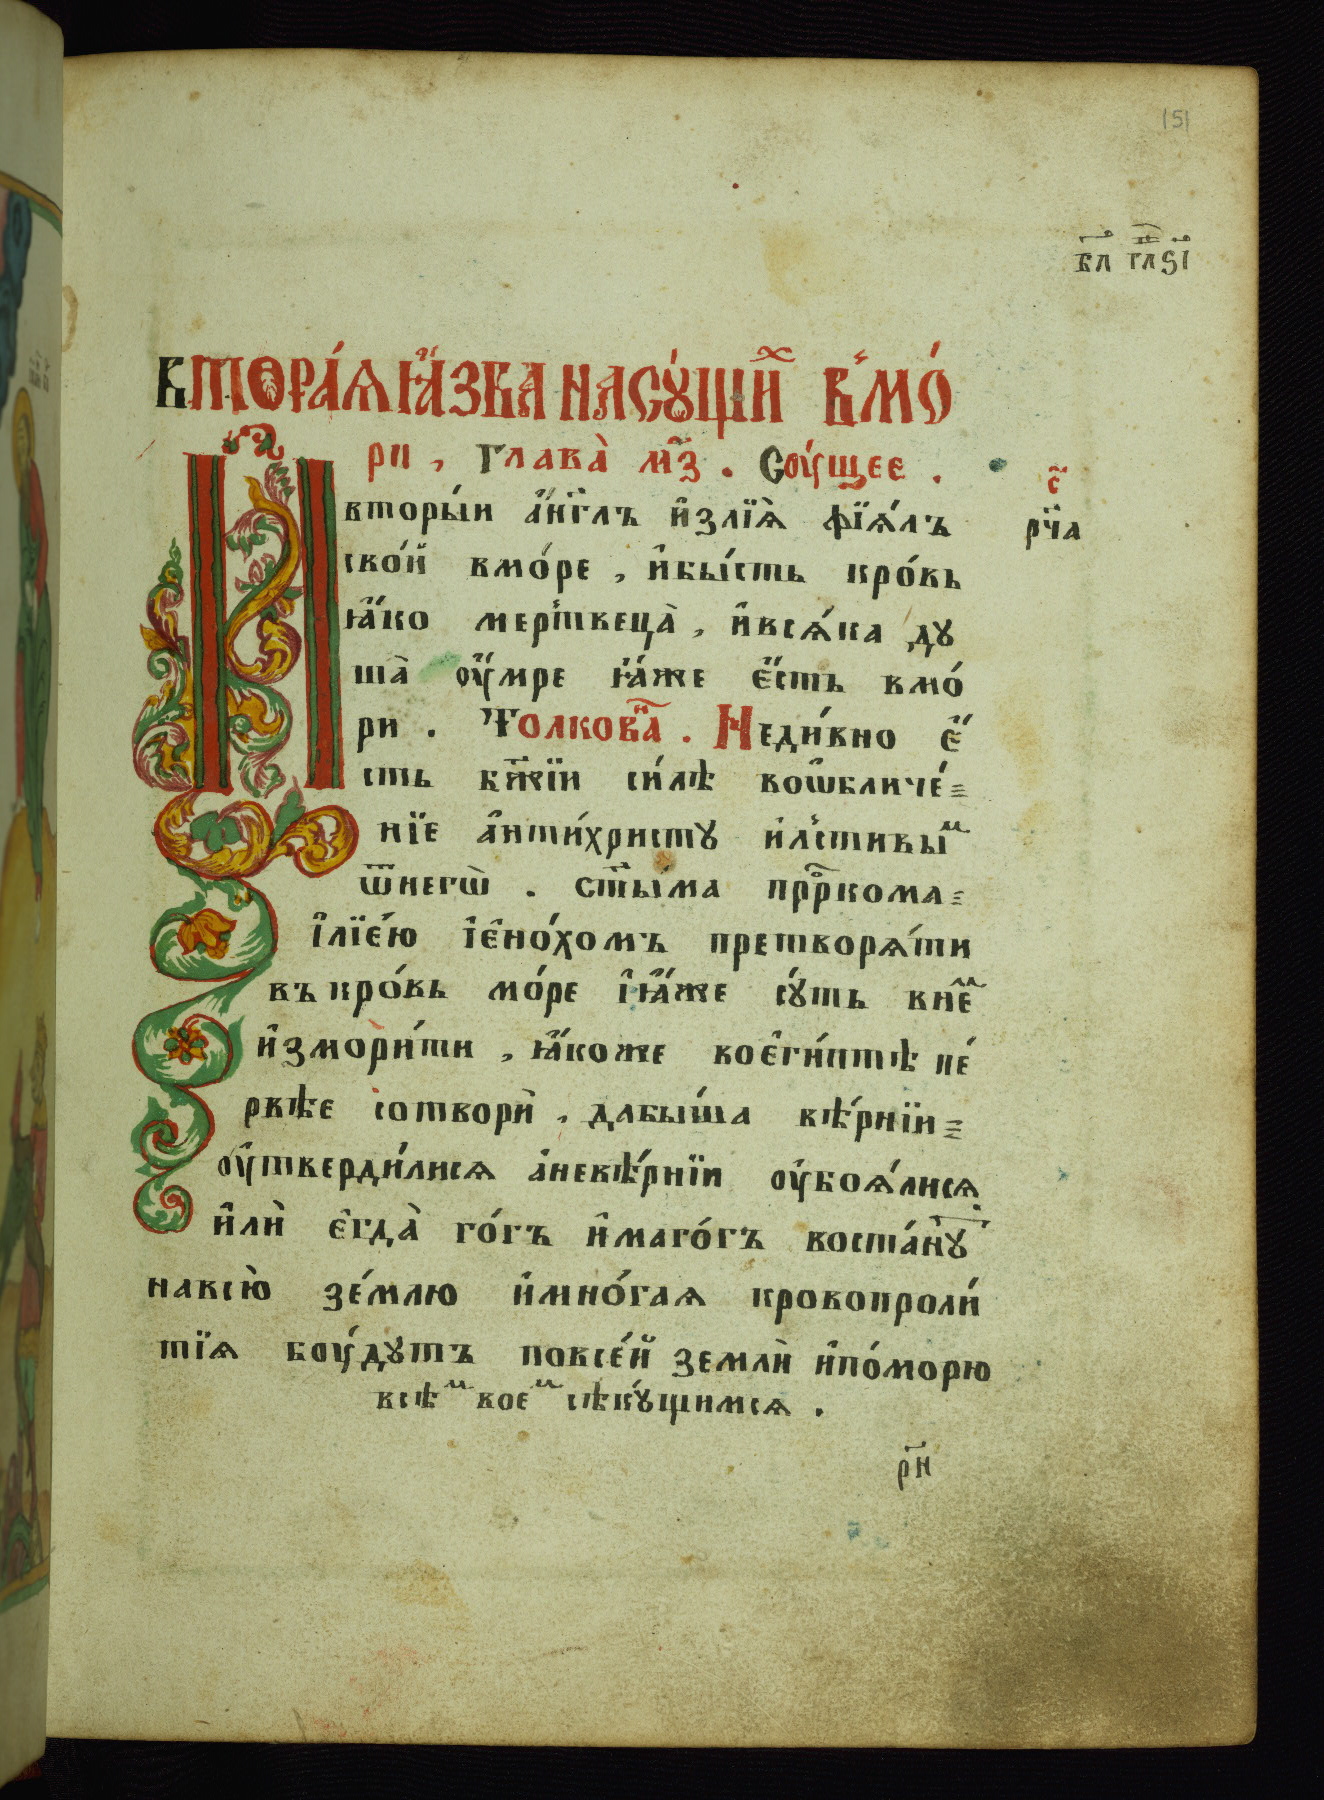 151
в҃л гл҃ѕ҃і
втора́ѧ ꙗ҆́зва насꙋ́щи̑х в̾мо́
ри, глава̀ м҃з. Соу́щее.
с҃
рч҃а
И
вторы́и а҆́нг҃лъ и҆злїѧ̀ фїѧ́лъ
сво́й вмо́ре, и҆бы́сть кро́вь
ꙗ҆́ко мер̾твеца̀, и҆всѧ́ка дꙋ
ша̀ оу҆́мре ꙗ҆́же є҆́сть вмо́
ри. Толковⷩ҇а. Неди́вно є҆́
сть бж҃їи си́лѣ воѡ҆бличе́=
нїе а҆нти́христꙋ и҆льстивыⷨ
ѿнегѡ̀. ст҃ы́ма прⷪ҇ркома=
і҆лїе́ю і҆є҆но́хомъ претворѧ́ти
въ кро́вь мо́ре і҆ꙗ҆́же сꙋ́ть внеⷨ
и҆змори́ти, ꙗ҆́коже воє҆ги́птѣ пе́
рвѣе сотворѝ, дабы́ша вѣ́рнїи=
оу҆тверди́лисѧ а҆невѣ́рнїи оу҆боѧ́лисѧ
и҆лѝ є҆гда̀ го́гъ и҆маго́гъ воста́нꙋⷮ
навсю̀ зе́млю и҆мно́гаѧ кровопроли́
тїѧ боу́дꙋтъ повсе́й землѝ и҆по́морю
всѣⷨ воеⷨ сѣкꙋ́щимсѧ.
рн҃